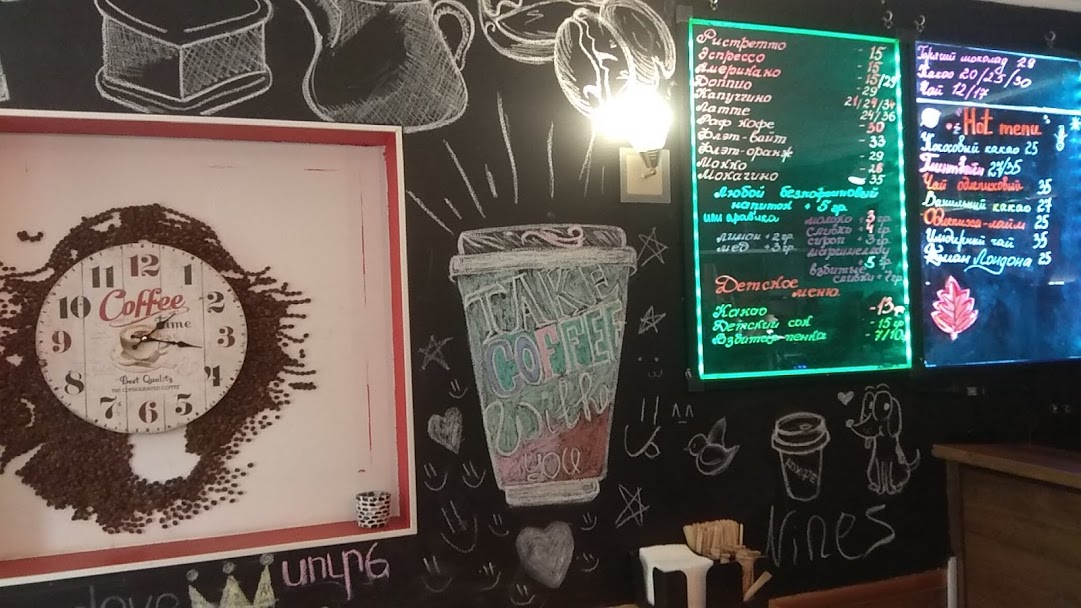 12
11
1
10
2
9
3
8
4
7
5
6
Coffee
time
Best Quality
TAKE
COFFEE
With
you
Ристретто - 15
Эспрессо - 15
Американо - 15/25
Доппио - 29
Капуччино 21/29/34
Латте 24/36
Раф кофе - 30
Флэт-вайт - 33
Флэт-оранж - 29
Мокко - 28
Мокачино 35
Любой безкофеиновый
напиток + 5 гр
или арабика
молоко + 3 гр
сливки + 4 гр
лимон + 2 гр
сироп + 3 гр
мёд + 3 гр
маршмеллоу
5 гр
взбитые
сливки + 7 гр
Детское
меню
Какао - 13
Детский сок - 15 гр
Взбитая пенка - 7/10
Горячий шоколад 28
Какао 20/25/30
Чай 12/17
Hot menu
Кокосовый какао 25
Глинтвейн 27/35
Чай облепиховый 35
Ванильный какао 27
Облепиха-лайм 25
Имбирный чай 35
Туман Лондона 25
Nines
love